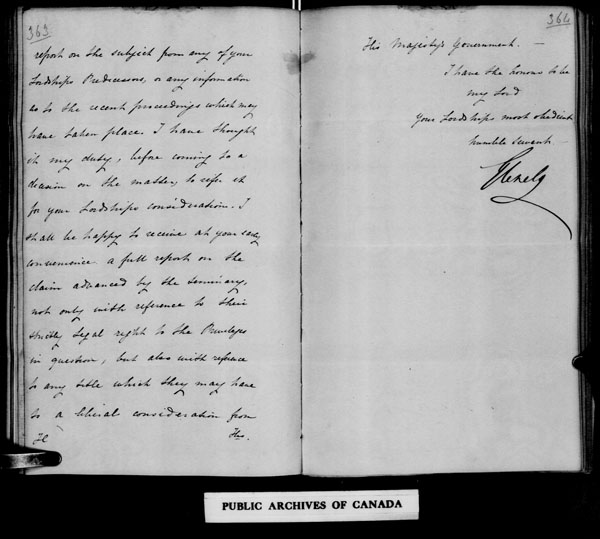 363
report on the subject from any of your
Lordship's Predecessors, or any information
as to the recent proceedings which may
have taken place. I have thought
it my duty, before coming to a
decision on the matter, to refer it
for your Lordship's consideration. I
shall be happy to receive at your early
convenience a full report on the
claim advanced by the Seminary,
not only with reference to their
strictly legal right to the Privileges
in question, but also with reference
to any title which they may have
to a liberal consideration from
His.
364
His Majesty's Government. —
I have the honour to be
My Lord
Your Lordship's most obedient
humble servant
Glenelg
PUBLIC ARCHIVES OF CANADA